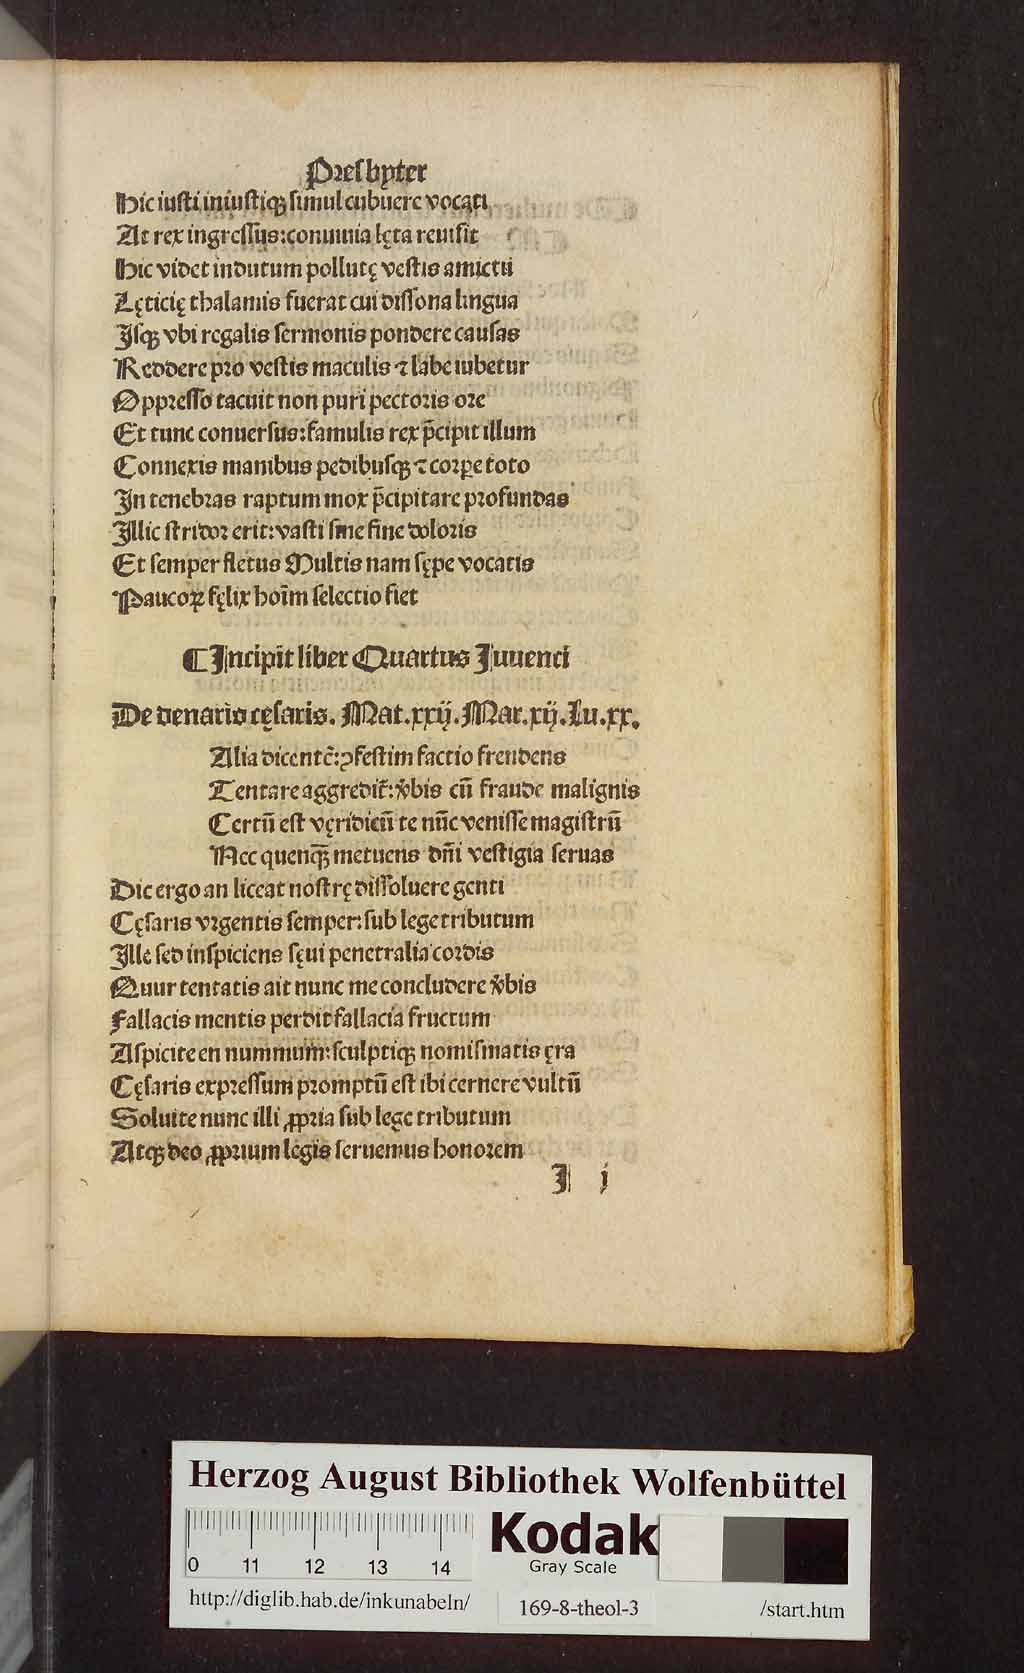 Presbyter
Hic iusti iniustiqꝫ simul cubuere vocati
At rex ingressus: conuiuia lęta reuisit
Hic videt indutum pollutę vestis amictu
Lęticię thalamis fuerat cui dissona lingua
Isqꝫ vbi regalis sermonis pondere causas
Reddere pro vestis maculis ⁊ labe iubetur
Oppresso tacuit non puri pectoris ore
Et tunc conuersus: famulis rex p̄cipit illum
Connexis manibus pedibusqꝫ ⁊ corꝑe toto
In tenebras raptum mox p̄cipitare profundas
Illic stridor erit: vasti sine fine doloris
Et semper fletus Multis nam sępe vocatis
Paucoꝝ fęlix hoīm selectio fiet
¶ Incipit liber Quartus Iuuenci
De denario cęsaris. Mat.xxij. Mar.xij. Lu.xx.
Alia dicentē: ꝓfestim factio frendens
Tentare aggredit̄: v̄bis cū fraude malignis
Certū est vęridicū te nūc venisse magistrū
Nec quenqꝫ̄ metuens dn̄i vestigia seruas
Dic ergo an liceat nostrę dissoluere genti
Cęsaris vrgentis semper: sub lege tributum
Ille sed inspiciens sęui penetralia cordis
Quur tentatis ait nunc me concludere v̄bis
Fallacis mentis perdit fallacia fructum
Aspicite en nummum: sculptiqꝫ nomismatis ęra
Cęsaris expressum promptū est ibi cernere vultū
Soluite nunc illi ꝓpria sub lege tributum
Atqꝫ deo ꝓprium legis seruemus honorem
I j
Herzog August Bibliothek Wolfenbüttel
0 11 12 13 14
Kodak
Gray Scale
http://diglib.hab.de/inkunabeln/ 169-8-theol-3 /start.htm